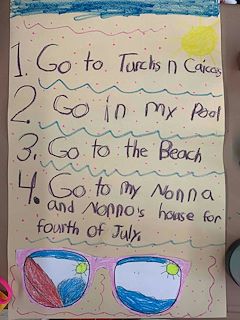 1. Go to Turchs n Caicos
2. Go in my Pool
3. Go to the Beach
4. Go to my Nonna
and Nonno's house for
fourth of July.